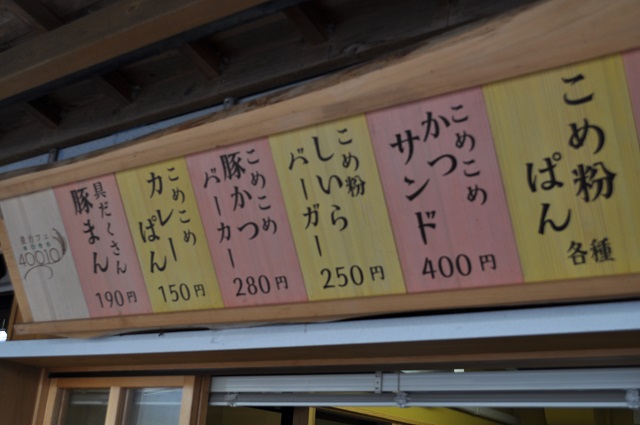 こめ粉
ぱん
各種
こめこめ
かつ
サンド
400円
こめ粉
しいら
バーガー
250円
こめこめ
豚かつ
バーガー
280円
こめこめ
カレー
ぱん
150円
具だくさん
豚まん
190円
40010